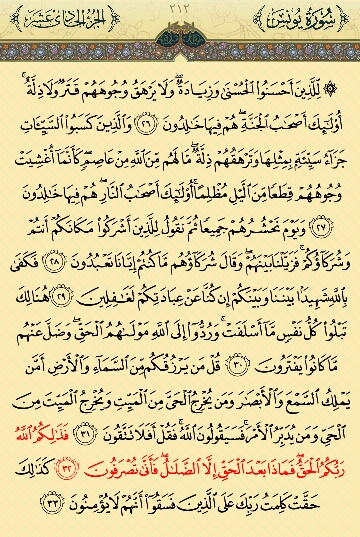 سُورَةُ يُونُسَ ٢١٢ الجُزءُ الحَادِي عَشَرَ
۞ لِّلَّذِينَ أَحْسَنُوا۟ ٱلْحُسْنَىٰ وَزِيَادَةٌۖ وَلَا يَرْهَقُ وُجُوهَهُمْ قَتَرٌۭ وَلَا ذِلَّةٌۚ
أُو۟لَـٰٓئِكَ أَصْحَـٰبُ ٱلْجَنَّةِۖ هُمْ فِيهَا خَـٰلِدُونَ ﴿٢٦﴾ وَٱلَّذِينَ كَسَبُوا۟ ٱلسَّيِّـَٔاتِ
جَزَآءُ سَيِّئَةٍۭ بِمِثْلِهَا وَتَرْهَقُهُمْ ذِلَّةٌۭۖ مَّا لَهُم مِّنَ ٱللَّهِ مِنْ عَاصِمٍۢۖ كَأَنَّمَآ أُغْشِيَتْ
وُجُوهُهُمْ قِطَعًۭا مِّنَ ٱلَّيْلِ مُظْلِمًاۚ أُو۟لَـٰٓئِكَ أَصْحَـٰبُ ٱلنَّارِۖ هُمْ فِيهَا خَـٰلِدُونَ
﴿٢٧﴾ وَيَوْمَ نَحْشُرُهُمْ جَمِيعًۭا ثُمَّ نَقُولُ لِلَّذِينَ أَشْرَكُوا۟ مَكَانَكُمْ أَنتُمْ
وَشُرَكَآؤُكُمْۚ فَزَيَّلْنَا بَيْنَهُمْۖ وَقَالَ شُرَكَآؤُهُم مَّا كُنتُمْ إِيَّانَا تَعْبُدُونَ ﴿٢٨﴾ فَكَفَىٰ
بِٱللَّهِ شَهِيدًۢا بَيْنَنَا وَبَيْنَكُمْ إِن كُنَّا عَنْ عِبَادَتِكُمْ لَغَـٰفِلِينَ ﴿٢٩﴾ هُنَالِكَ
تَبْلُوا۟ كُلُّ نَفْسٍۢ مَّآ أَسْلَفَتْۚ وَرُدُّوٓا۟ إِلَى ٱللَّهِ مَوْلَىٰهُمُ ٱلْحَقِّۖ وَضَلَّ عَنْهُم
مَّا كَانُوا۟ يَفْتَرُونَ ﴿٣٠﴾ قُلْ مَن يَرْزُقُكُم مِّنَ ٱلسَّمَآءِ وَٱلْأَرْضِ أَمَّن
يَمْلِكُ ٱلسَّمْعَ وَٱلْأَبْصَـٰرَ وَمَن يُخْرِجُ ٱلْحَىَّ مِنَ ٱلْمَيِّتِ وَيُخْرِجُ ٱلْمَيِّتَ مِنَ
ٱلْحَىِّ وَمَن يُدَبِّرُ ٱلْأَمْرَۚ فَسَيَقُولُونَ ٱللَّهُۚ فَقُلْ أَفَلَا تَتَّقُونَ ﴿٣١﴾ فَذَٰلِكُمُ ٱللَّهُ
رَبُّكُمُ ٱلْحَقُّۖ فَمَاذَا بَعْدَ ٱلْحَقِّ إِلَّا ٱلضَّلَـٰلُۖ فَأَنَّىٰ تُصْرَفُونَ ﴿٣٢﴾ كَذَٰلِكَ
حَقَّتْ كَلِمَتُ رَبِّكَ عَلَى ٱلَّذِينَ فَسَقُوٓا۟ أَنَّهُمْ لَا يُؤْمِنُونَ ﴿٣٣﴾